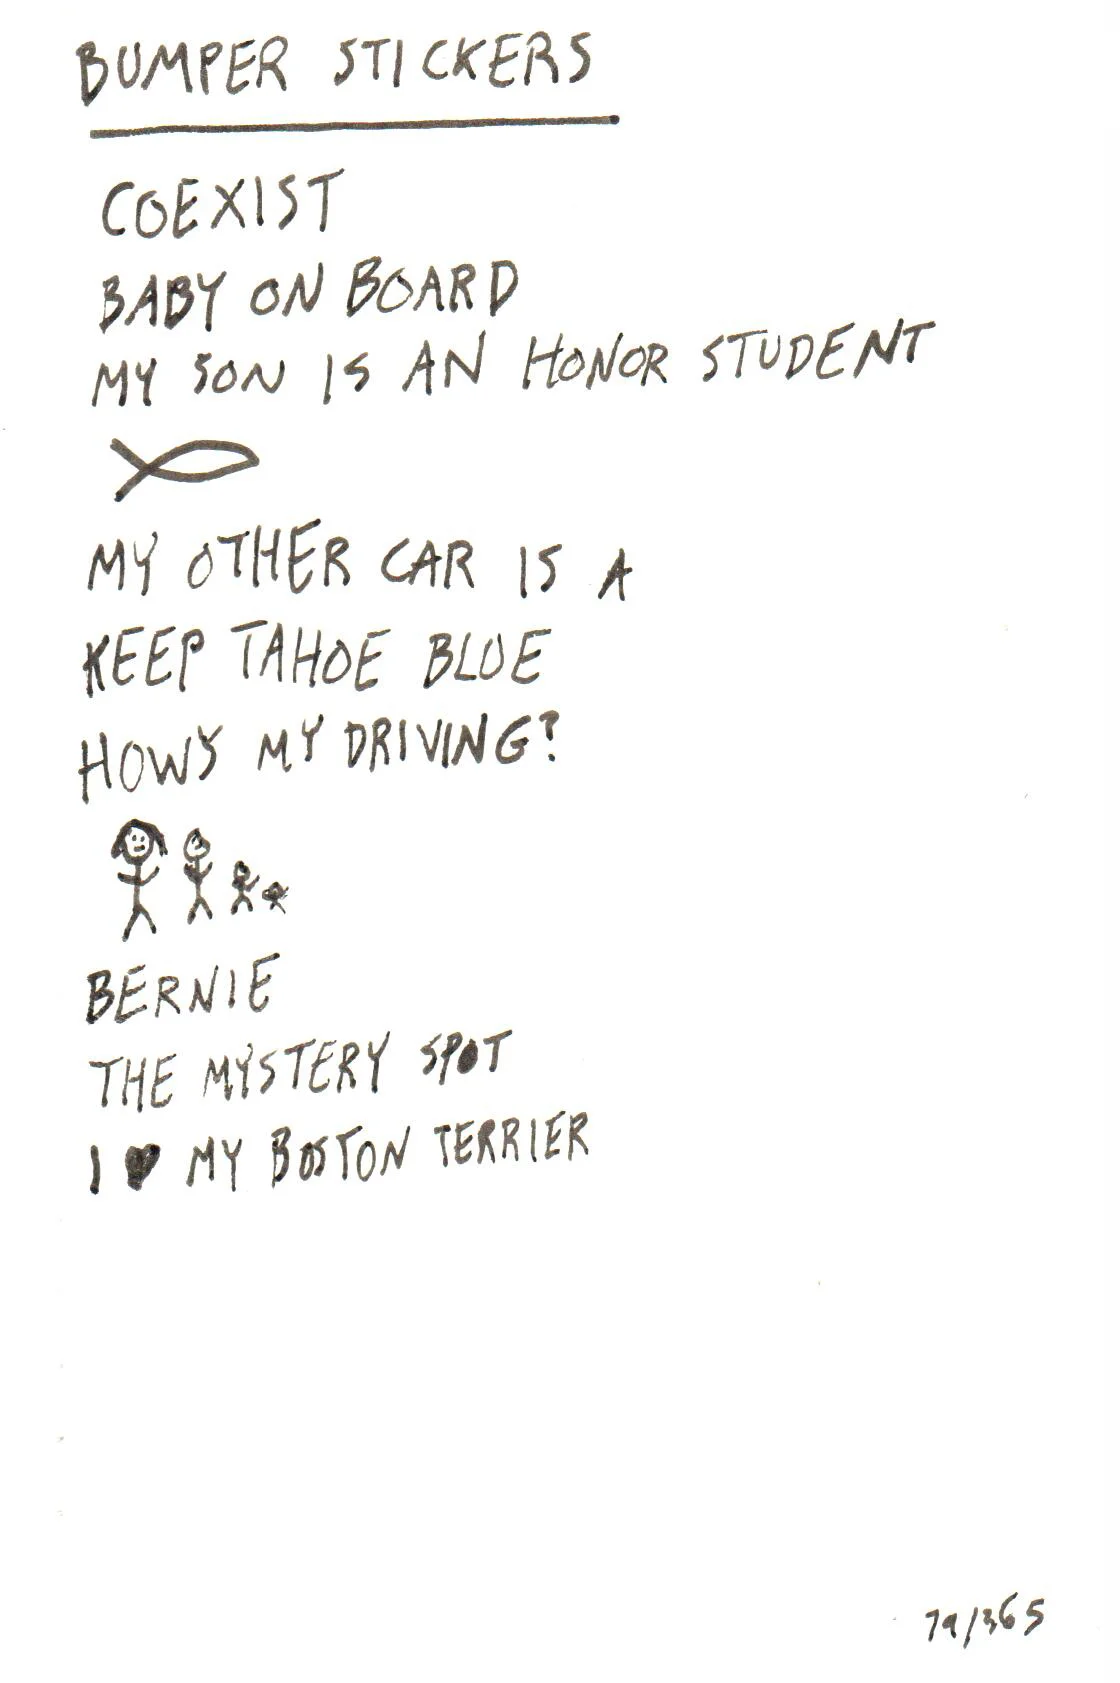 BUMPER STICKERS
COEXIST
BABY ON BOARD
MY SON IS AN HONOR STUDENT
MY OTHER CAR IS A
KEEP TAHOE BLUE
HOWS MY DRIVING?
BERNIE
THE MYSTERY SPOT
I ♥ MY BOSTON TERRIER
79/365